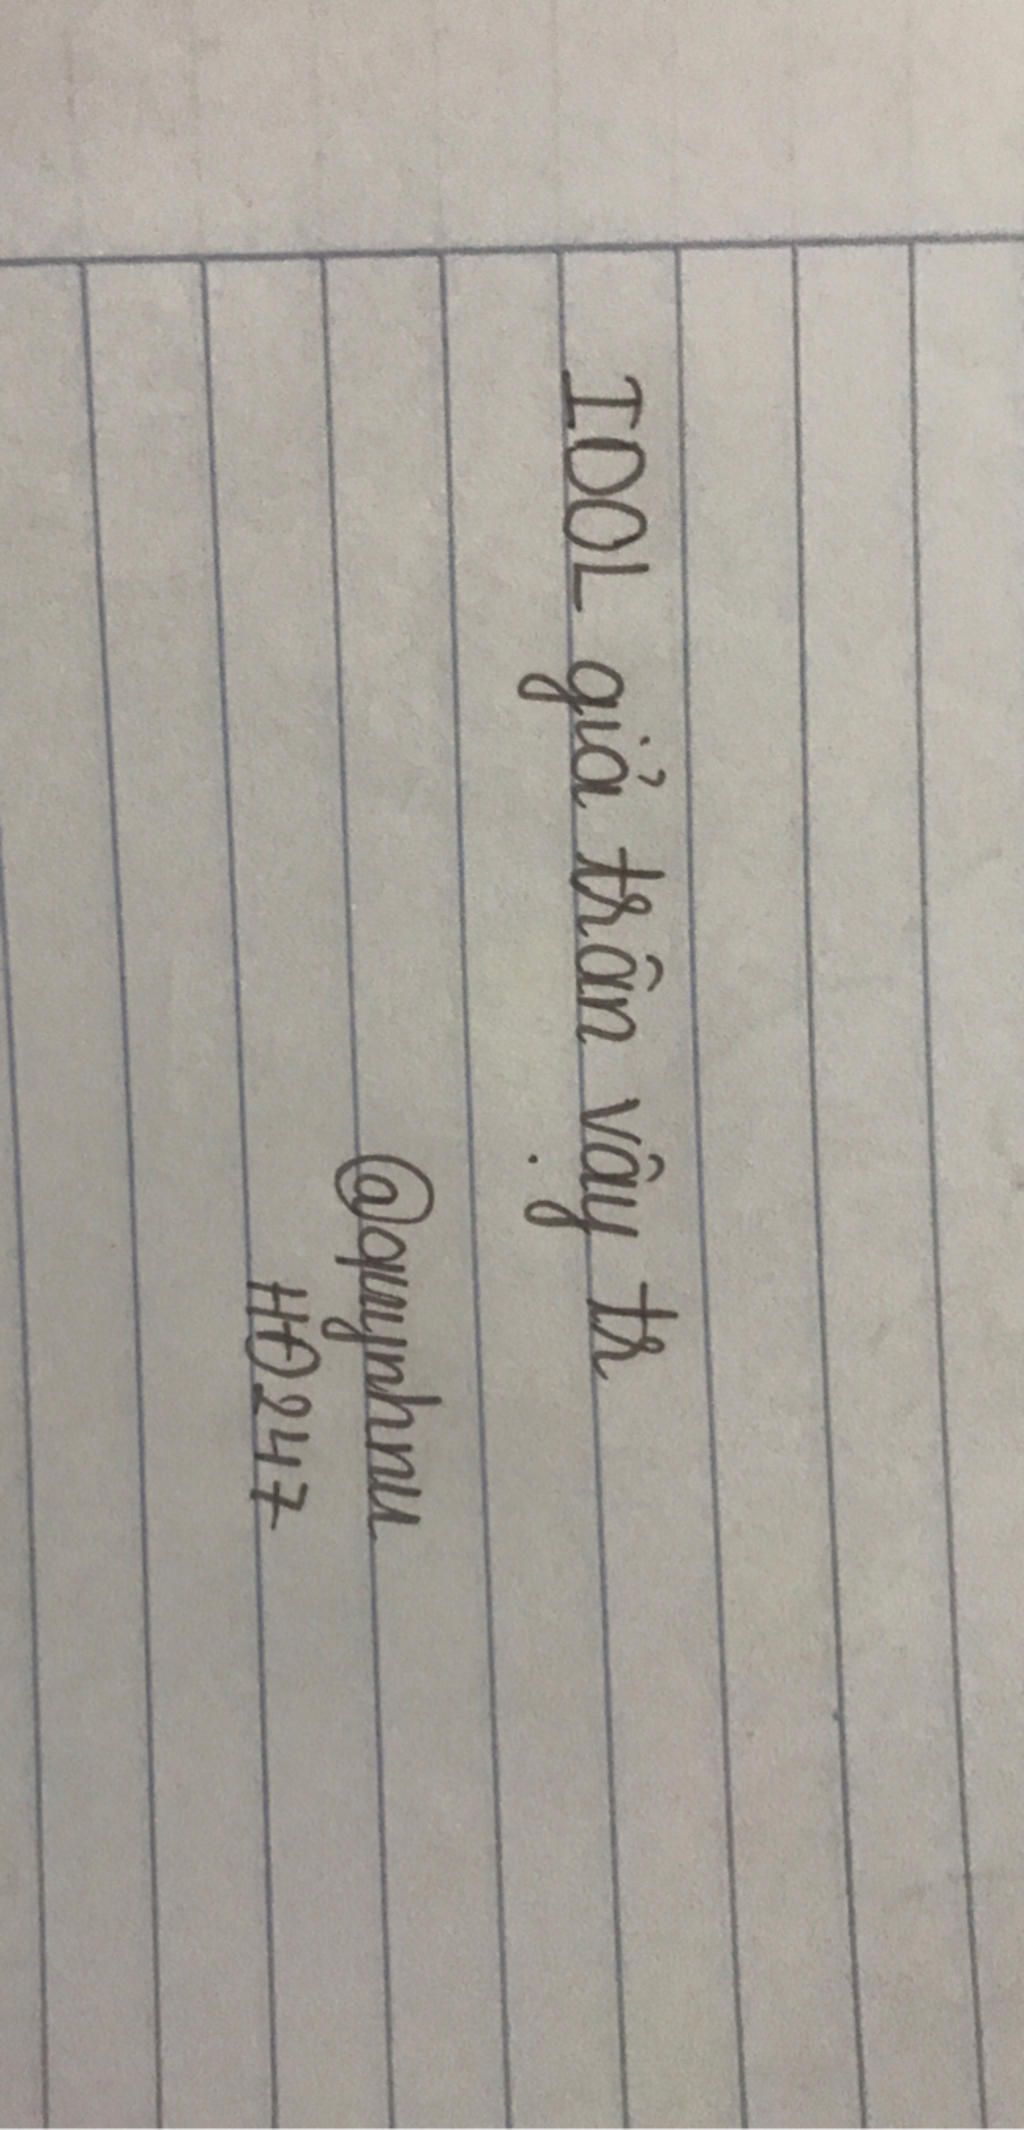 IDOL giả trân vậy tr
@quynhnu
HĐ247